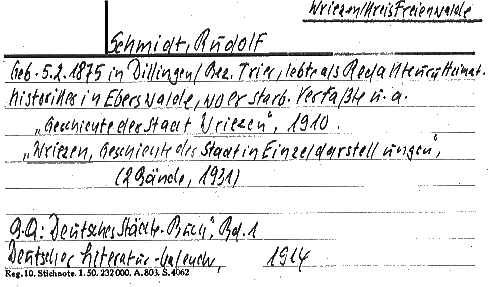 Wriezen/Kreis Freienwalde
Schmidt, Rudolf
Geb. 5.2.1875 in Dillingen/Bez. Trier, lebte als Redakteur u. Heimat-
historiker in Eberswalde, wo er starb. Verfaßte u.a.
„Geschichte der Stadt Wriezen", 1910.
„Wriezen, Geschichte der Stadt in Einzeldarstellungen",
(2 Bände, 1931)
Q.A.: Deutsches Städte-Buch", Bd. 1
Deutscher Literatur-Kalender, 1914
Reg. 10. Stichnote. 1. 50. 232 000. A. 803. S. 4062